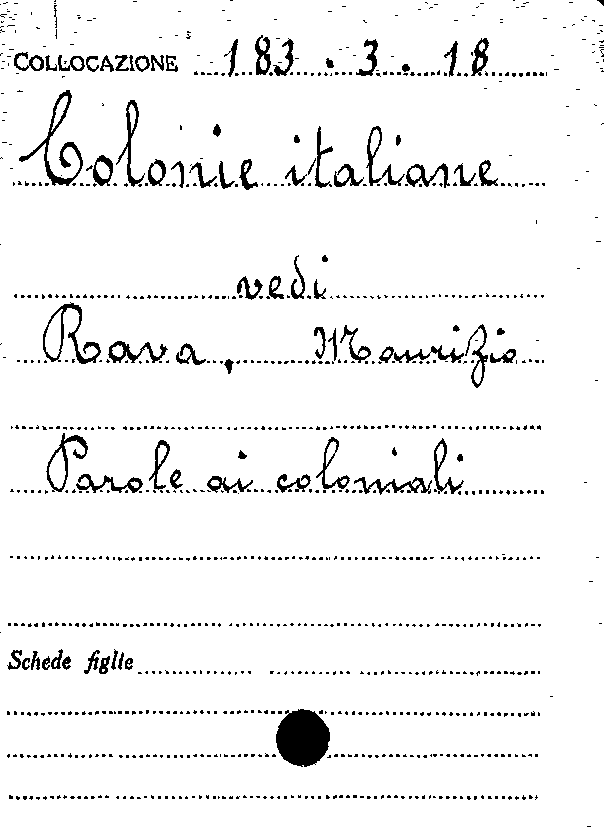 COLLOCAZIONE 183.3.18
Colonie italiane
vedi
Rava, Maurizio
Parole ai coloniali
Schede figlie